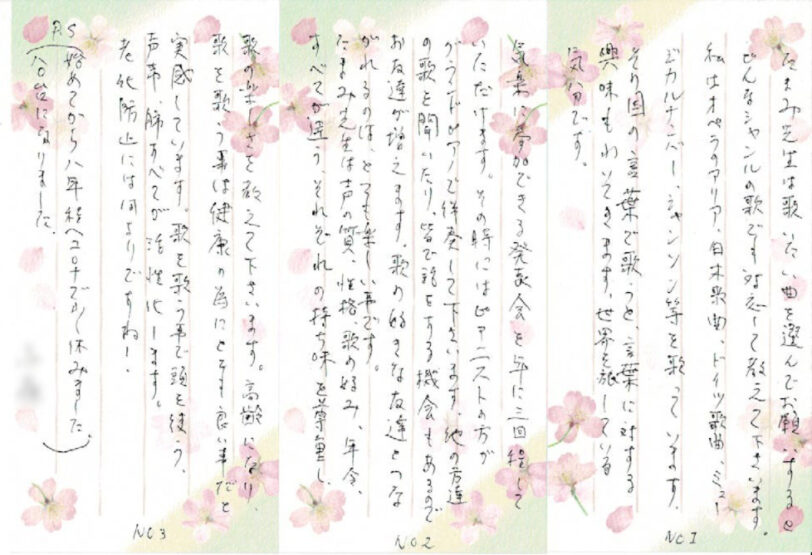 たまみ先生は歌いたい曲を選んでお願いすると
どんなジャンルの歌でも対応して教えて下さいます。
私はオペラのアリア、日本歌曲、ドイツ歌曲、ミュー
ジカルナンバー、シャンソン等を歌っています。
その国の言葉で歌うと、言葉に対する
興味もわいてきます。世界を旅している
気分です。
NO1
気楽に参加できる発表会を年に三回程して
いただけます。その時にはピアニストの方が
グランドピアノで伴奏して下さいます 他の方達
の歌を聞いたり、皆で話をする機会もあるので
お友達が増えます。歌の好きな友達とつな
がれるのは、とても楽しい事です。
たまみ先生は声の質、性格、歌の好み、年令、
すべてが違う、それぞれの持ち味を尊重し、
NO2
歌の楽しさを教えて下さいます。高齢になり、
歌を歌う事は健康の為にとても良い事だと
実感しています。歌を歌う事で頭を使う、
声帯、肺すべてが活性化します。
老化防止には何よりですね!
P.S
(始めてから八年程へコロナで少し休みました)
八〇台になりました。
NO3